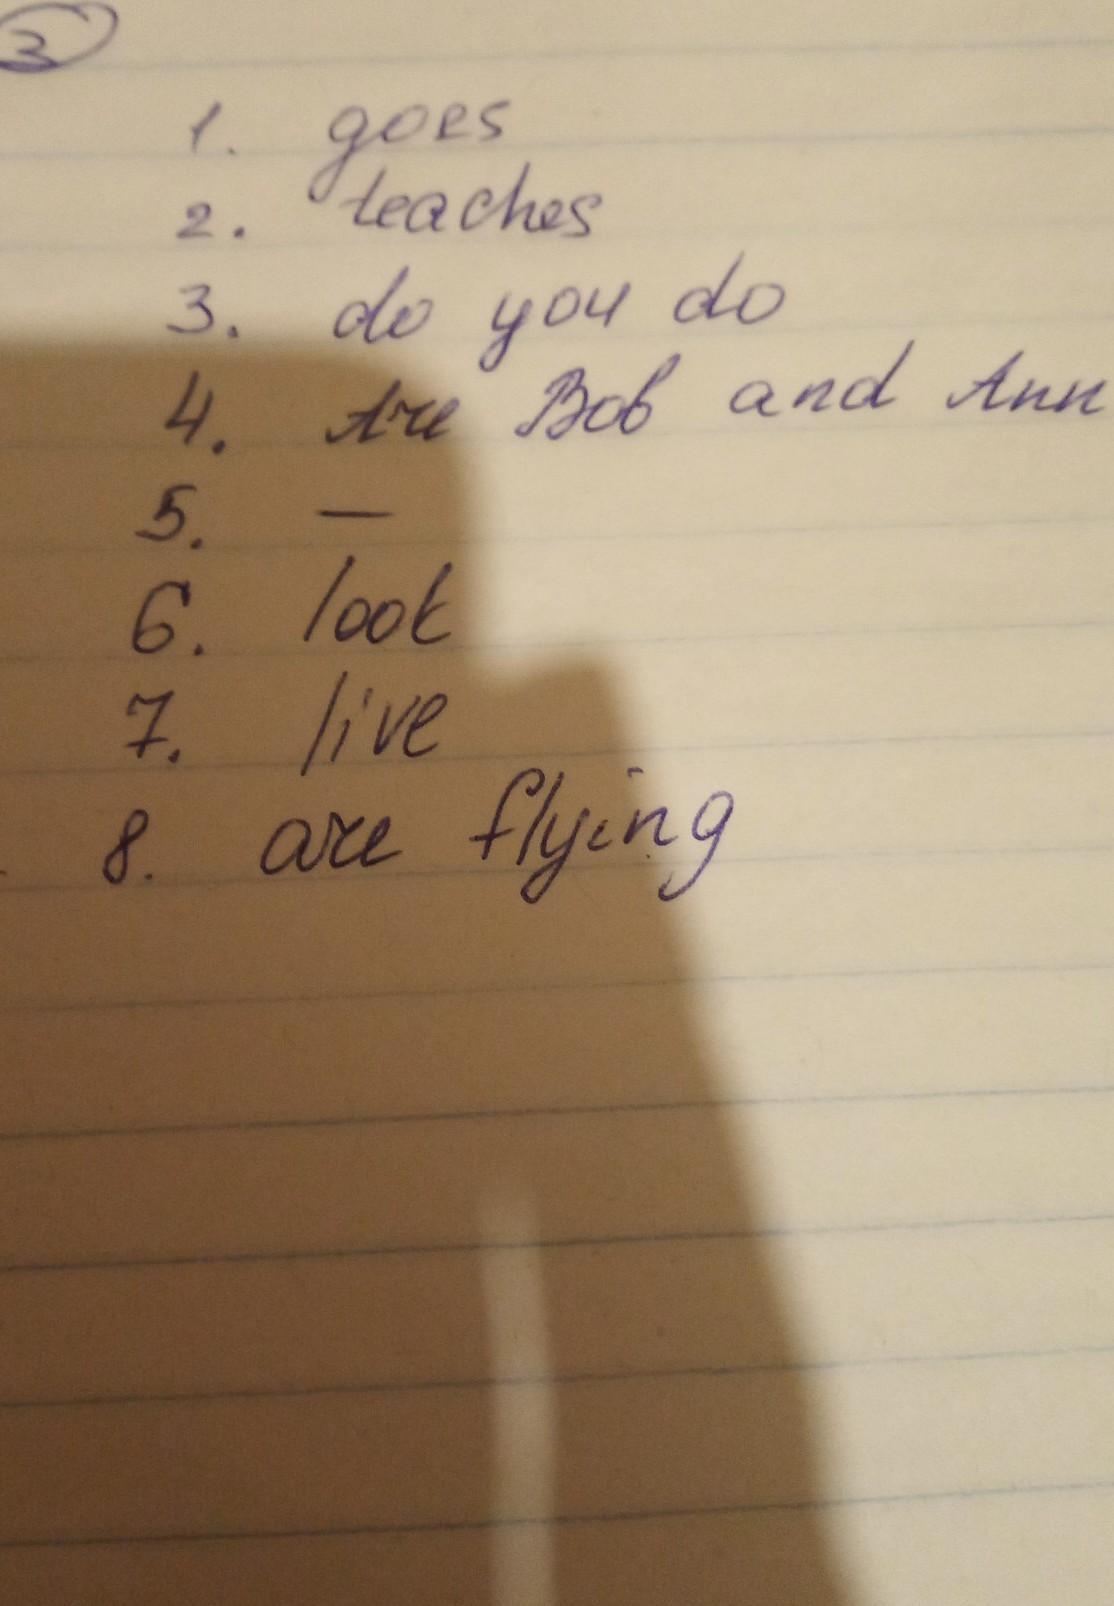 3
1. goes
2. teaches
3. do you do
4. Are Bob and Ann
5. —
6. look
7. live
8. are flying